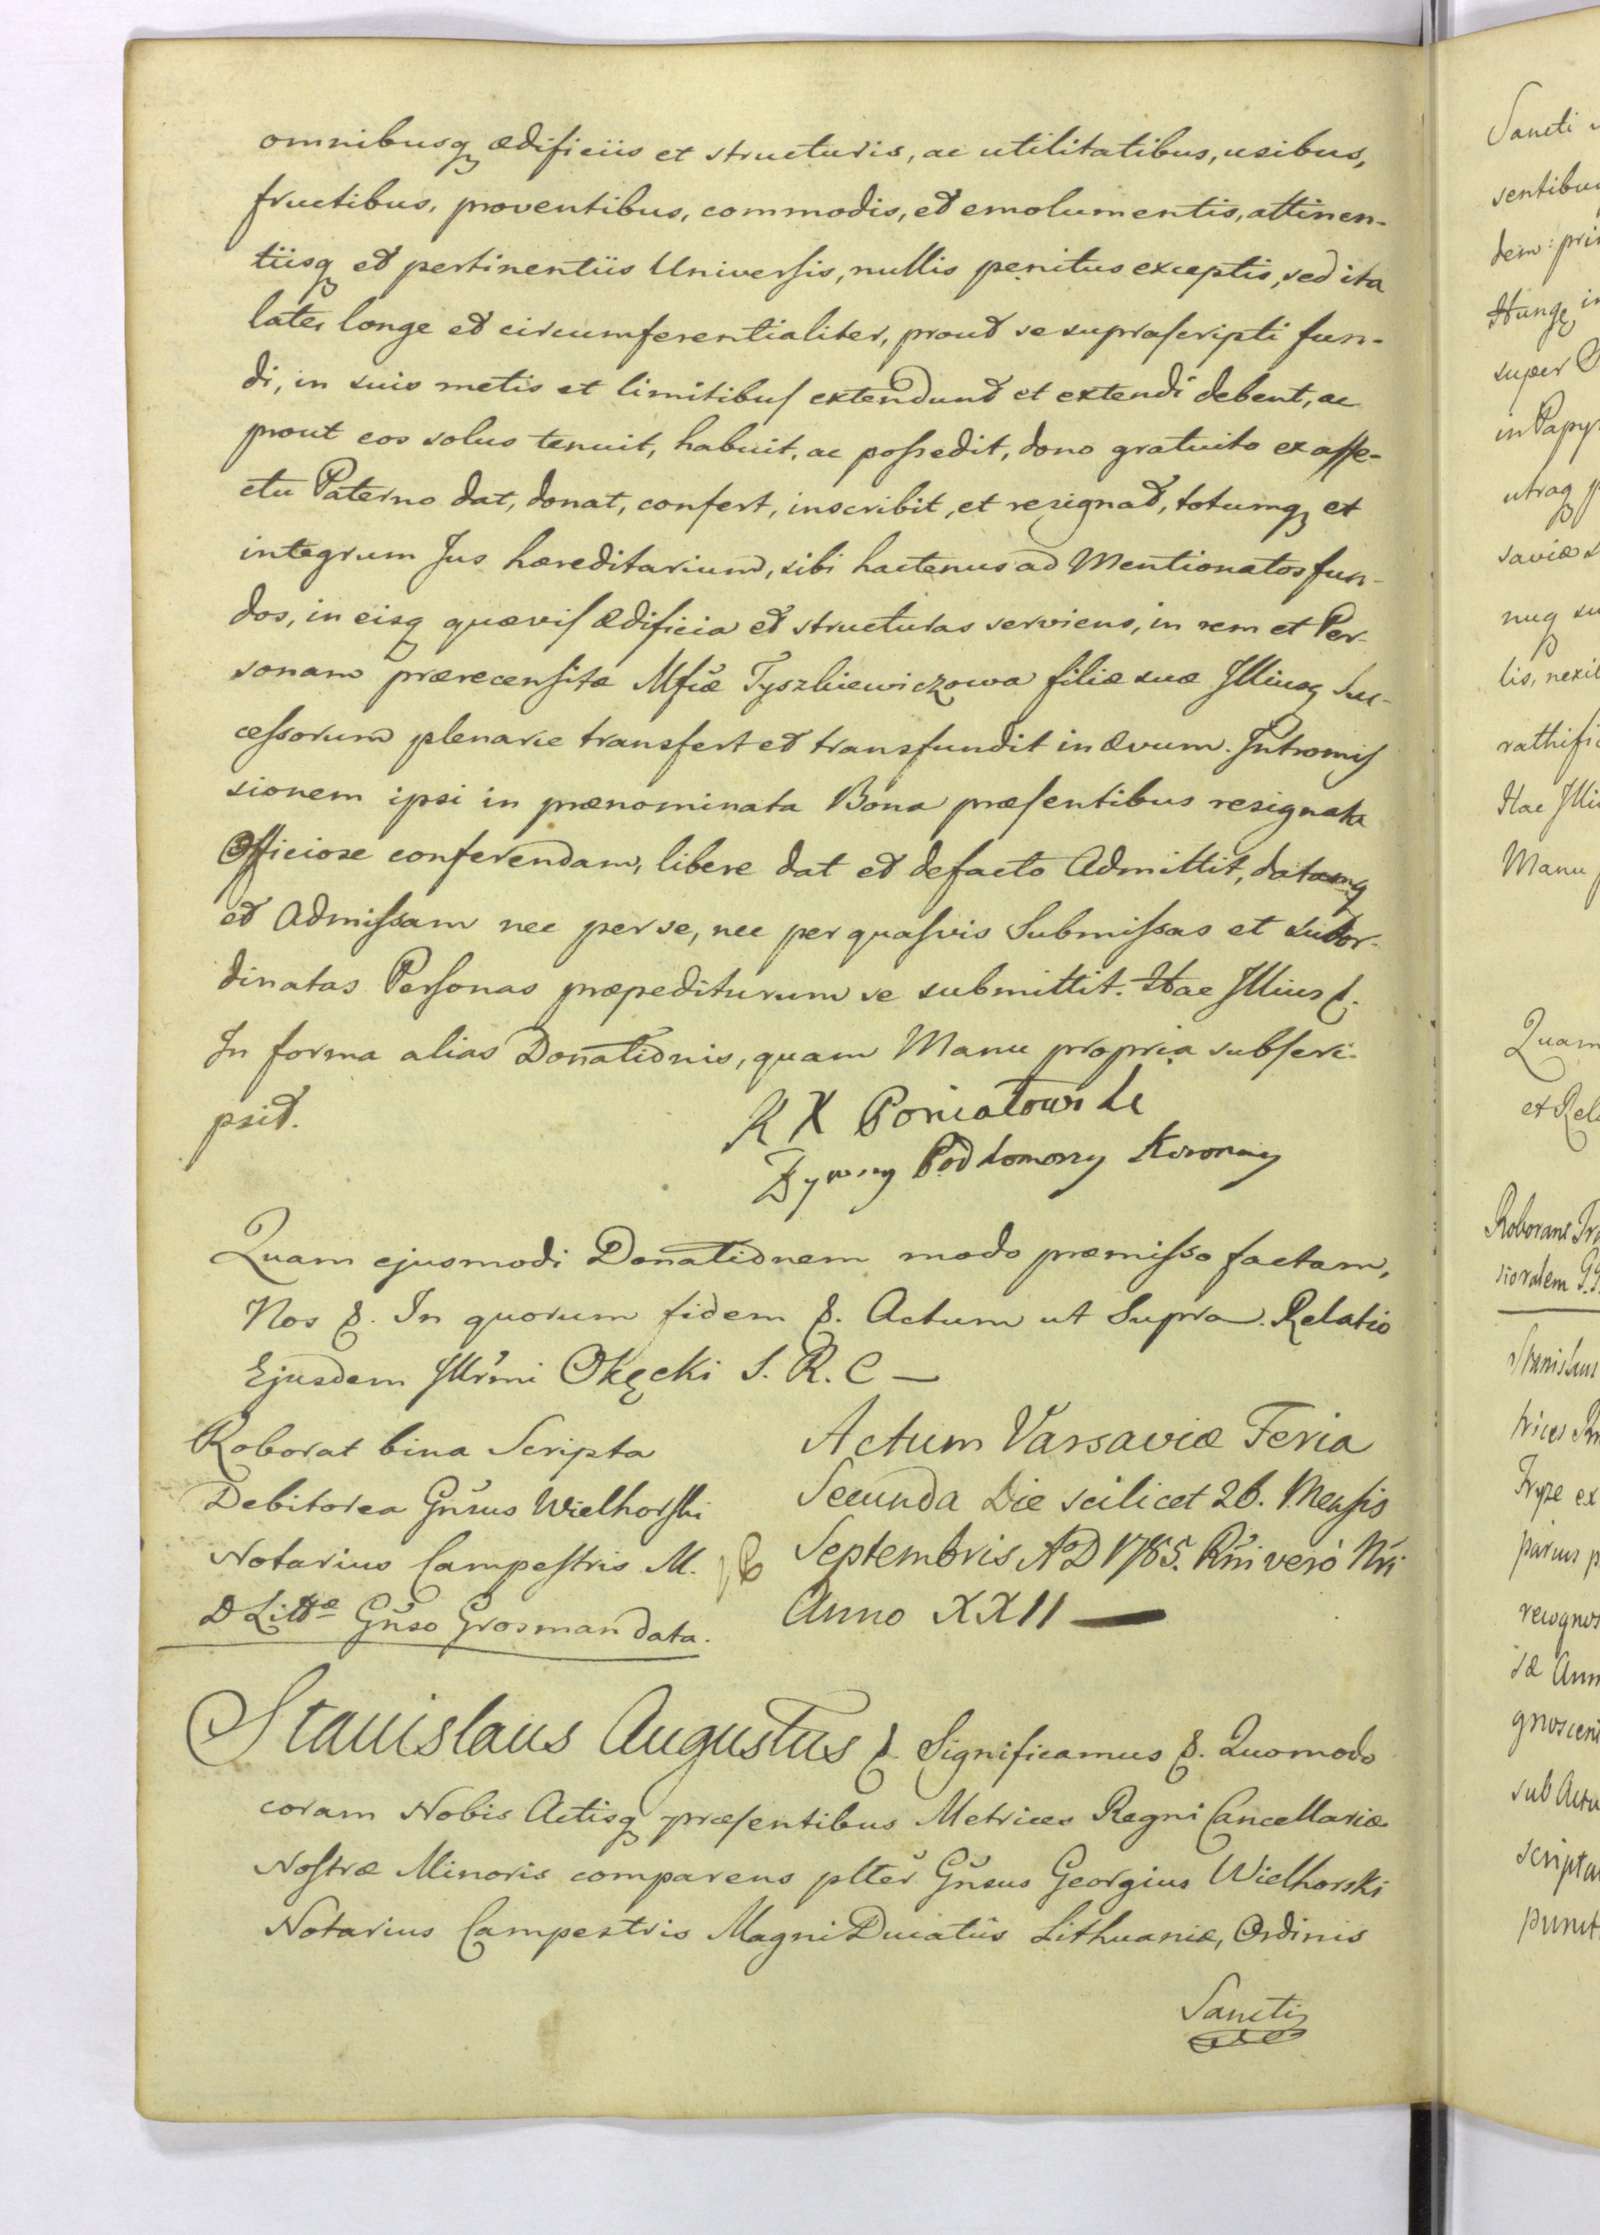 omnibusq ædificiis et structuris, ac utilitatibus, usibus,
fructibus, proventibus, commodis, et emolumentis, attinen-
tiisq et pertinentiis Universis, nullis penitus exceptis, sed ita
late, longe et circumferentialiter, prout se suprascripti fun-
di, in suis metis et limitibus extendunt et extendi debent, ac
prout eos solus tenuit, habuit, ac possedit, dono gratuito ex affe-
ctu Paterno dat, donat, confert, inscribit, et resignat, totumq et
integrum Jus hæreditarium, sibi hactenus ad Mentionatos fun-
dos, in eisq quævis ædificia et structuras serviens, in rem et Per-
sonam prærecensitæ Mfcæ Tyszkiewiczowa filiæ suæ Illiusq Suc-
cessorum plenarie transfert et transfundit in ævum. Intromis
sionem ipsi in prænominata Bona præsentibus resignata
Officiose conferendam, libere dat et defacto Admittit, datamq
et Admissam nec per se, nec per quasvis Submissas et subor-
dinatas Personas præpediturum se submittit. Hac Illius &.
In forma alias Donationis, quam Manu propria subscri-
psit.
K X Poniatowski
Bywszy Podkomorzy Koronny
Quam ejusmodi Donationem modo præmisso factam,
Nos &. In quorum fidem &. Actum ut Supra. Relatio
Ejusdem Illrmi Okęcki S. R. C —
Roborat bina Scripta
Debitorea Gnsus Wielhorski
Notarius Campestris M.
D Littæ Gnso Grosman data.
Actum Varsaviæ Feria
Secunda Die scilicet 26. Mensis
Septembris AoD 1785. Rni vero Nri
Anno XXII —
Stanislaus Augustus &. Significamus &. Quomodo
coram Nobis Actisq præsentibus Metrices Regni Cancellariæ
Nostræ Minoris comparens plter Gnsus Georgius Wielhorski
Notarius Campestris Magni Ducatus Lithuaniæ, Ordinis
Sancti
Sancti
sentibus
dem: pri
Hungæ in
super
in Papyr
utraq p
saviæ s
nuq su
lis, nexi
rathific
Hac Illi
Manu
Quam
et Rel
Roborans Tra
sioralem
Stanislaus
trices Rn
Fryze ex
parius p
recognos
sæ Ann
gnoscent
sub Actu
scripta
punct